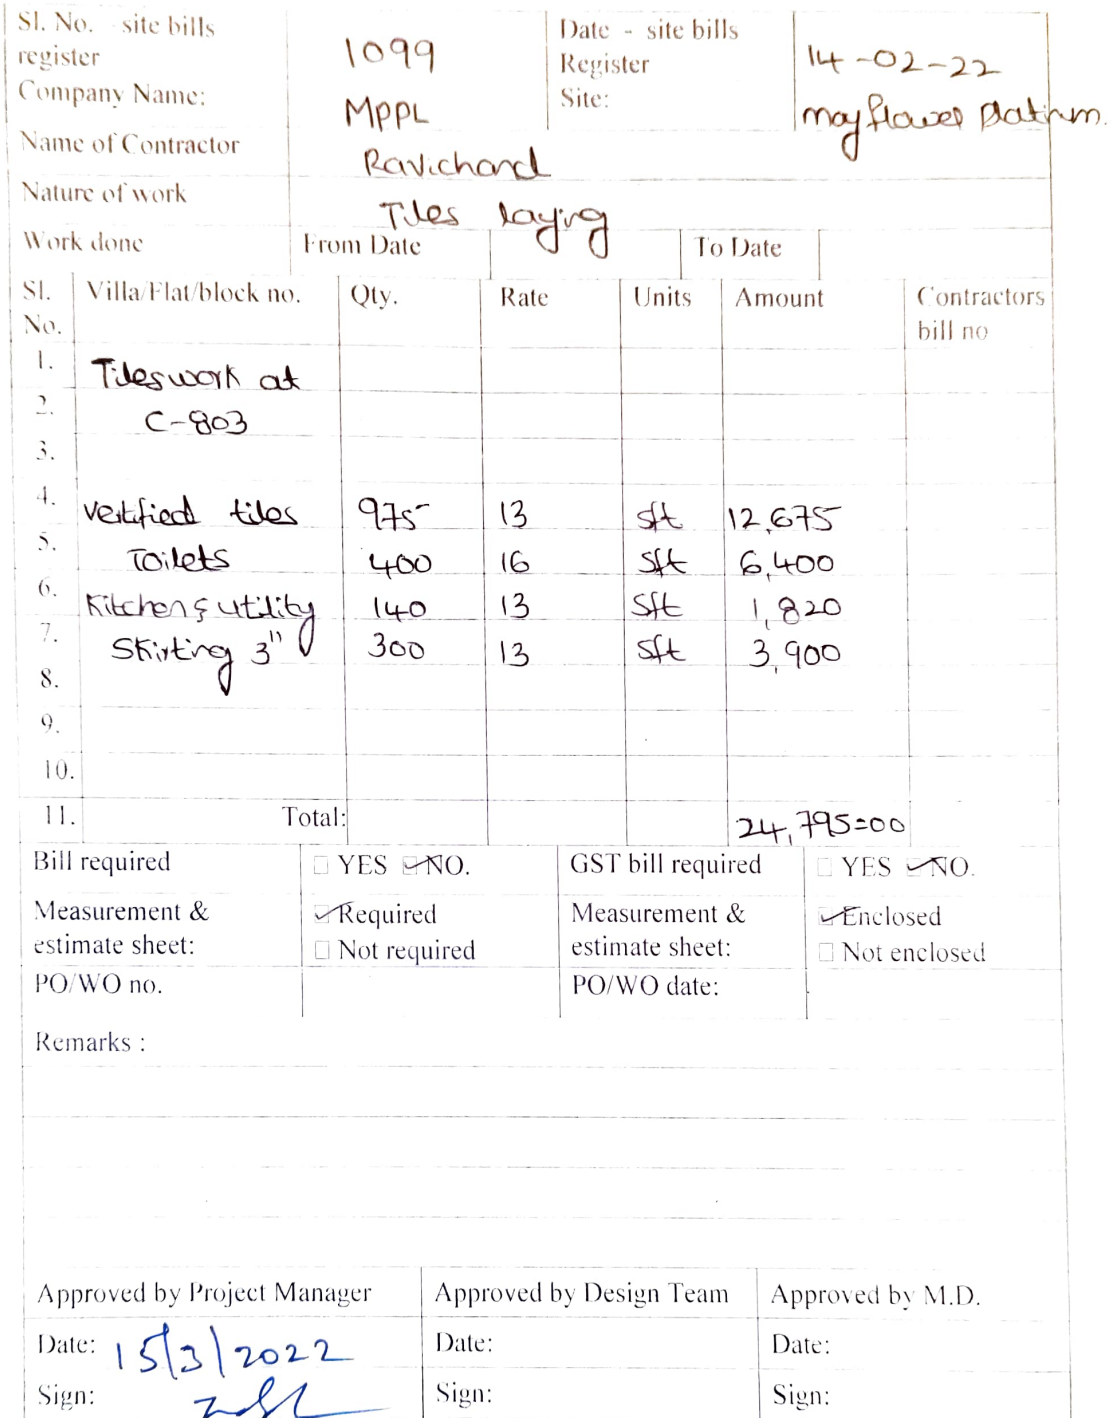 Sl. No. - site bills register 1099 Date - site bills Register 14-02-22
Company Name: MPPL Site: mayflower platinm.
Name of Contractor Ravichand
Nature of work Tiles laying
Work done From Date To Date
Sl. No. Villa/Flat/block no. Qty. Rate Units Amount Contractors bill no
1. Tiles work at
2. C-803
3.
4. vertified tiles 975 13 sft 12,675
5. Toilets 400 16 sft 6,400
6. Kitchen & utility 140 13 sft 1,820
7. Skirting 3" 300 13 sft 3,900
8.
9.
10.
11. Total: 24,795=00
Bill required YES NO. GST bill required YES NO.
Measurement & estimate sheet: Required Not required Measurement & estimate sheet: Enclosed Not enclosed
PO/WO no. PO/WO date:
Remarks :
Approved by Project Manager Approved by Design Team Approved by M.D.
Date: 15/3/2022 Date: Date:
Sign: Sign: Sign: